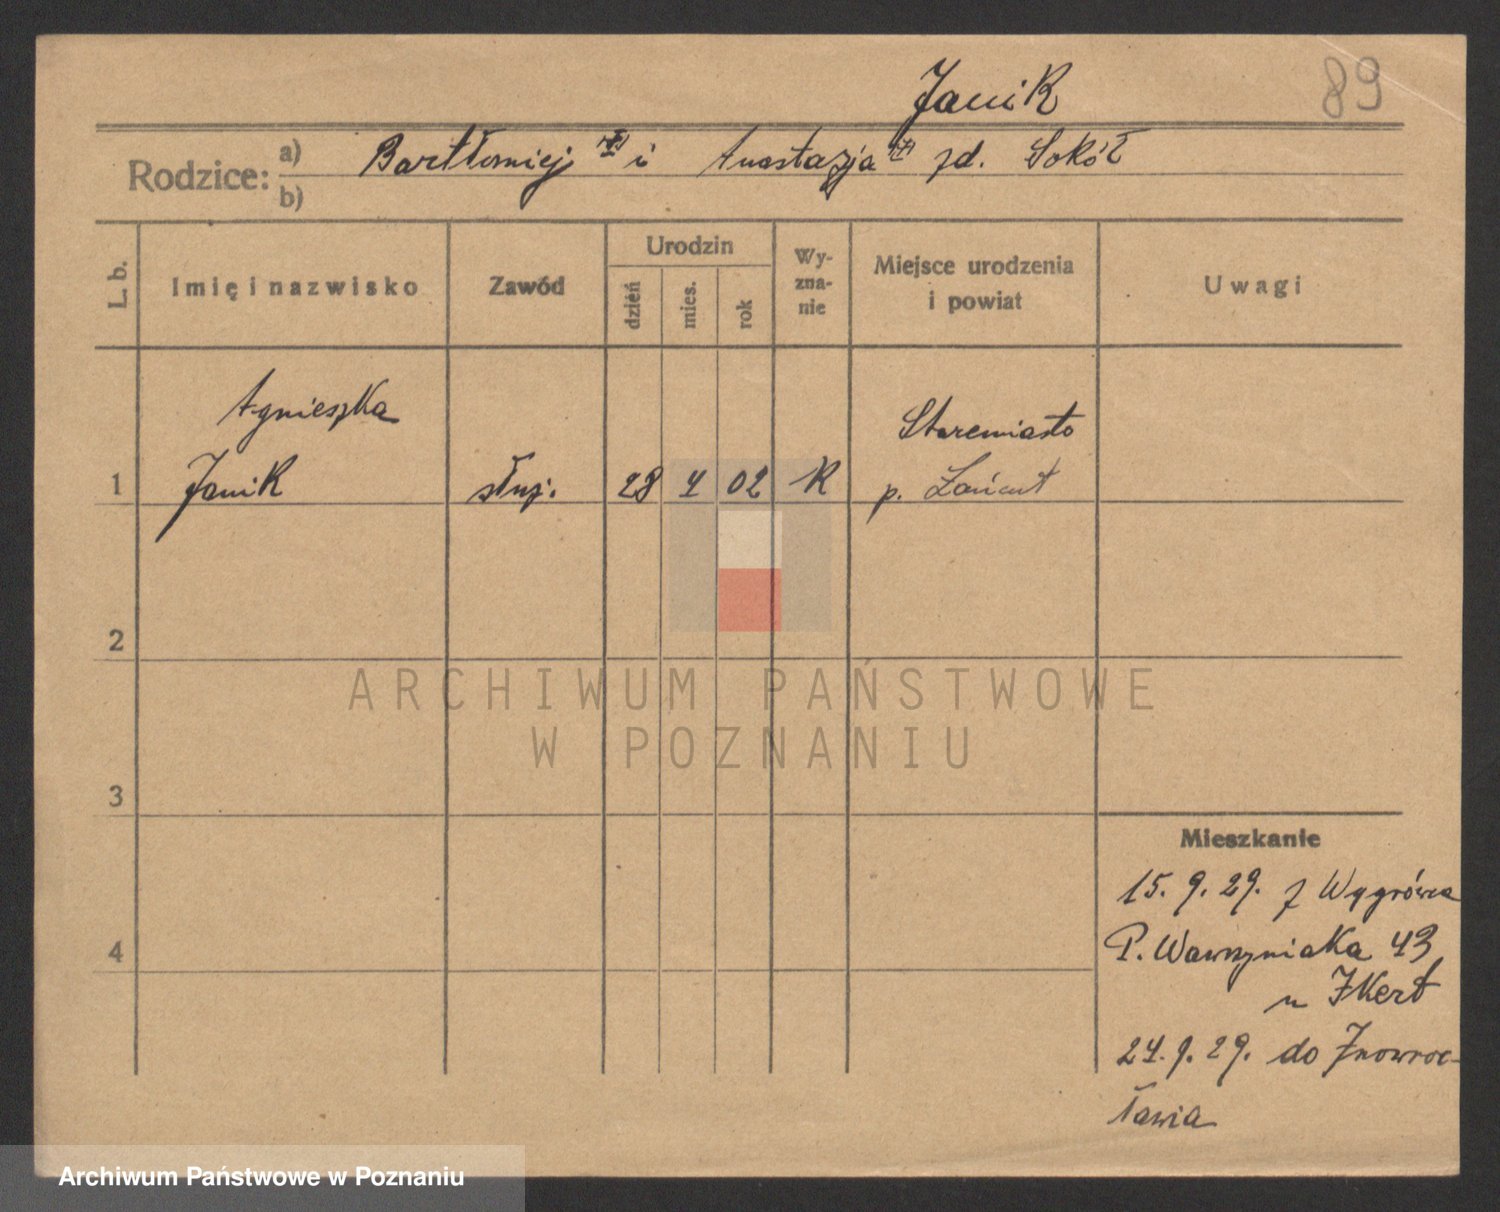 Janik
89
Rodzice: a) Bartłomiej i Anastazja zd. Sokół
b)
L. b. Imię i nazwisko Zawód Urodzin dzień mies. rok Wy-zna-nie Miejsce urodzenia i powiat Uwagi
Agnieszka Staremiasto
1 Janik służ. 28 1 02 K p. Łańcut
2
ARCHIWUM PAŃSTWOWE
W POZNANIU
3
Mieszkanie
15. 9. 29. z Wągrówca
4 P. Wawrzyniaka 43
u
24. 9. 29. do Inowroc-
ławia
Archiwum Państwowe w Poznaniu